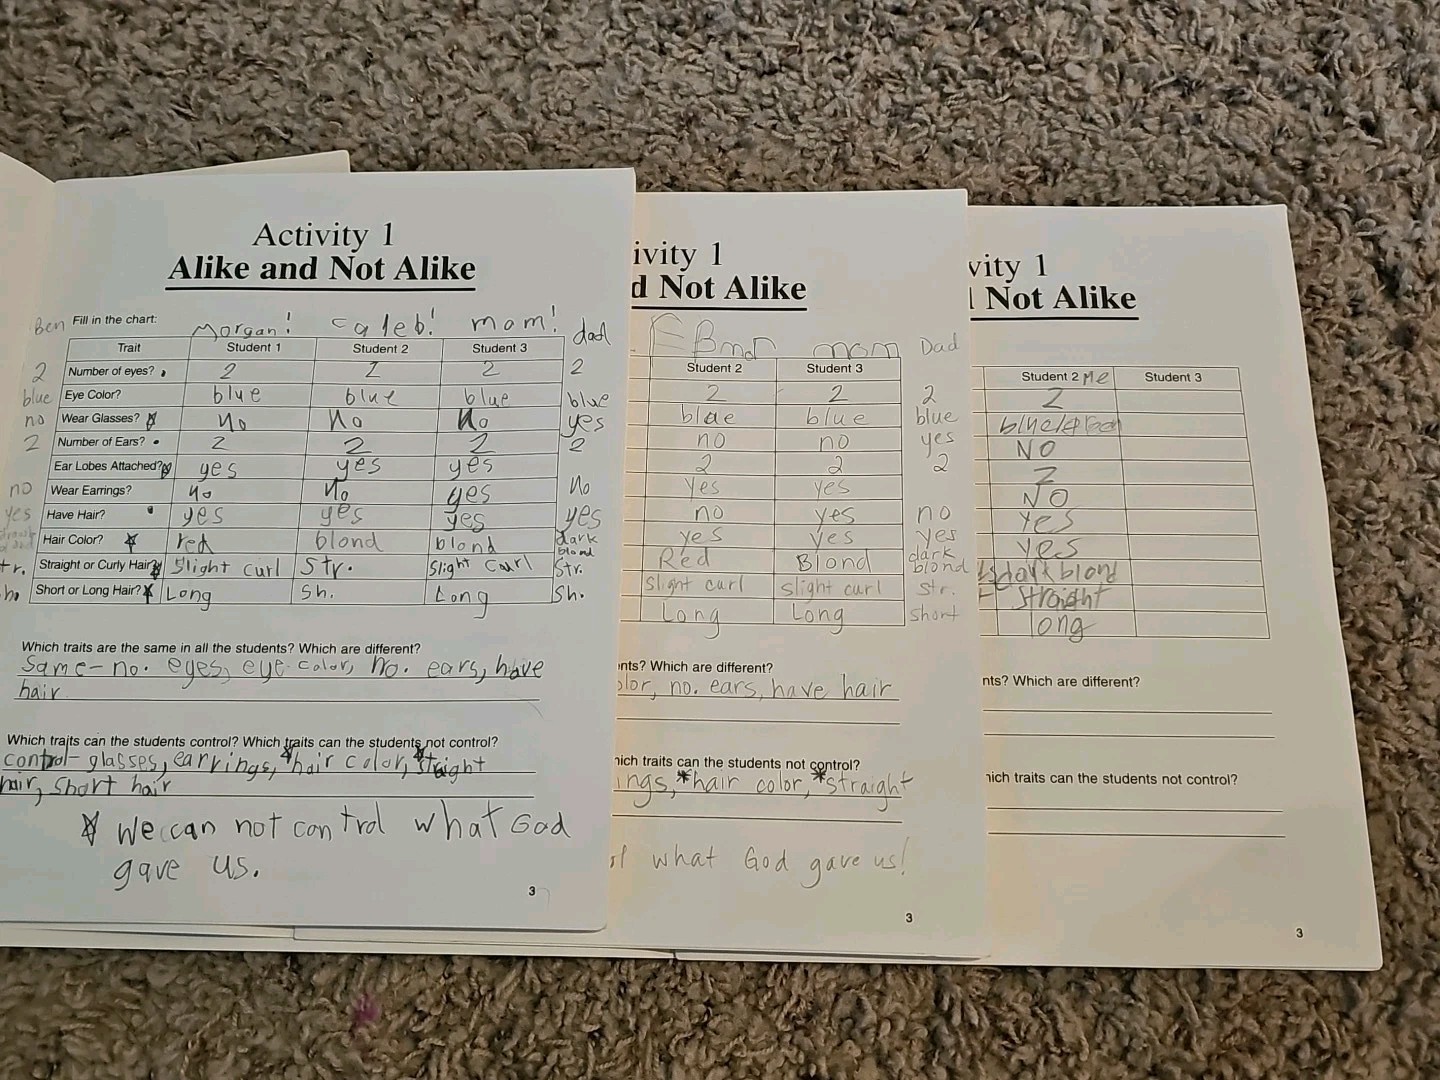 Activity 1
Alike and Not Alike
Ben Fill in the chart: Morgan! Caleb! mom! dad
Trait Student 1 Student 2 Student 3
2 Number of eyes? 2 2 2 2
blue Eye Color? blue blue blue blue
no Wear Glasses? No No No yes
2 Number of Ears? 2 2 2 2
Ear Lobes Attached? yes yes yes
no Wear Earrings? No No yes No
yes Have Hair? yes yes yes yes
Hair Color? red blond blond dark blond
str. Straight or Curly Hair? Slight curl Str. Slight curl Str.
Short or Long Hair? Long Sh. Long Sh.
Which traits are the same in all the students? Which are different?
Same- no. eyes, eye color, no. ears, have
hair
Which traits can the students control? Which traits can the students not control?
control- glasses, earrings, *hair color, *straight
hair, short hair
* We can not control what God
gave us.
3
ivity 1
d Not Alike
mom Dad
Student 2 Student 3
2 2 2
blue blue blue
no no yes
2 2 2
yes yes
no yes no
yes yes yes
Red Blond dark blond
slight curl slight curl str.
Long Long short
nts? Which are different?
olor, no. ears, have hair
hich traits can the students not control?
ings, *hair color, *straight
ol what God gave us!
3
vity 1
Not Alike
Student 2 Me Student 3
2
NO
2
NO
yes
yes
dark blond
straight
long
nts? Which are different?
hich traits can the students not control?
3